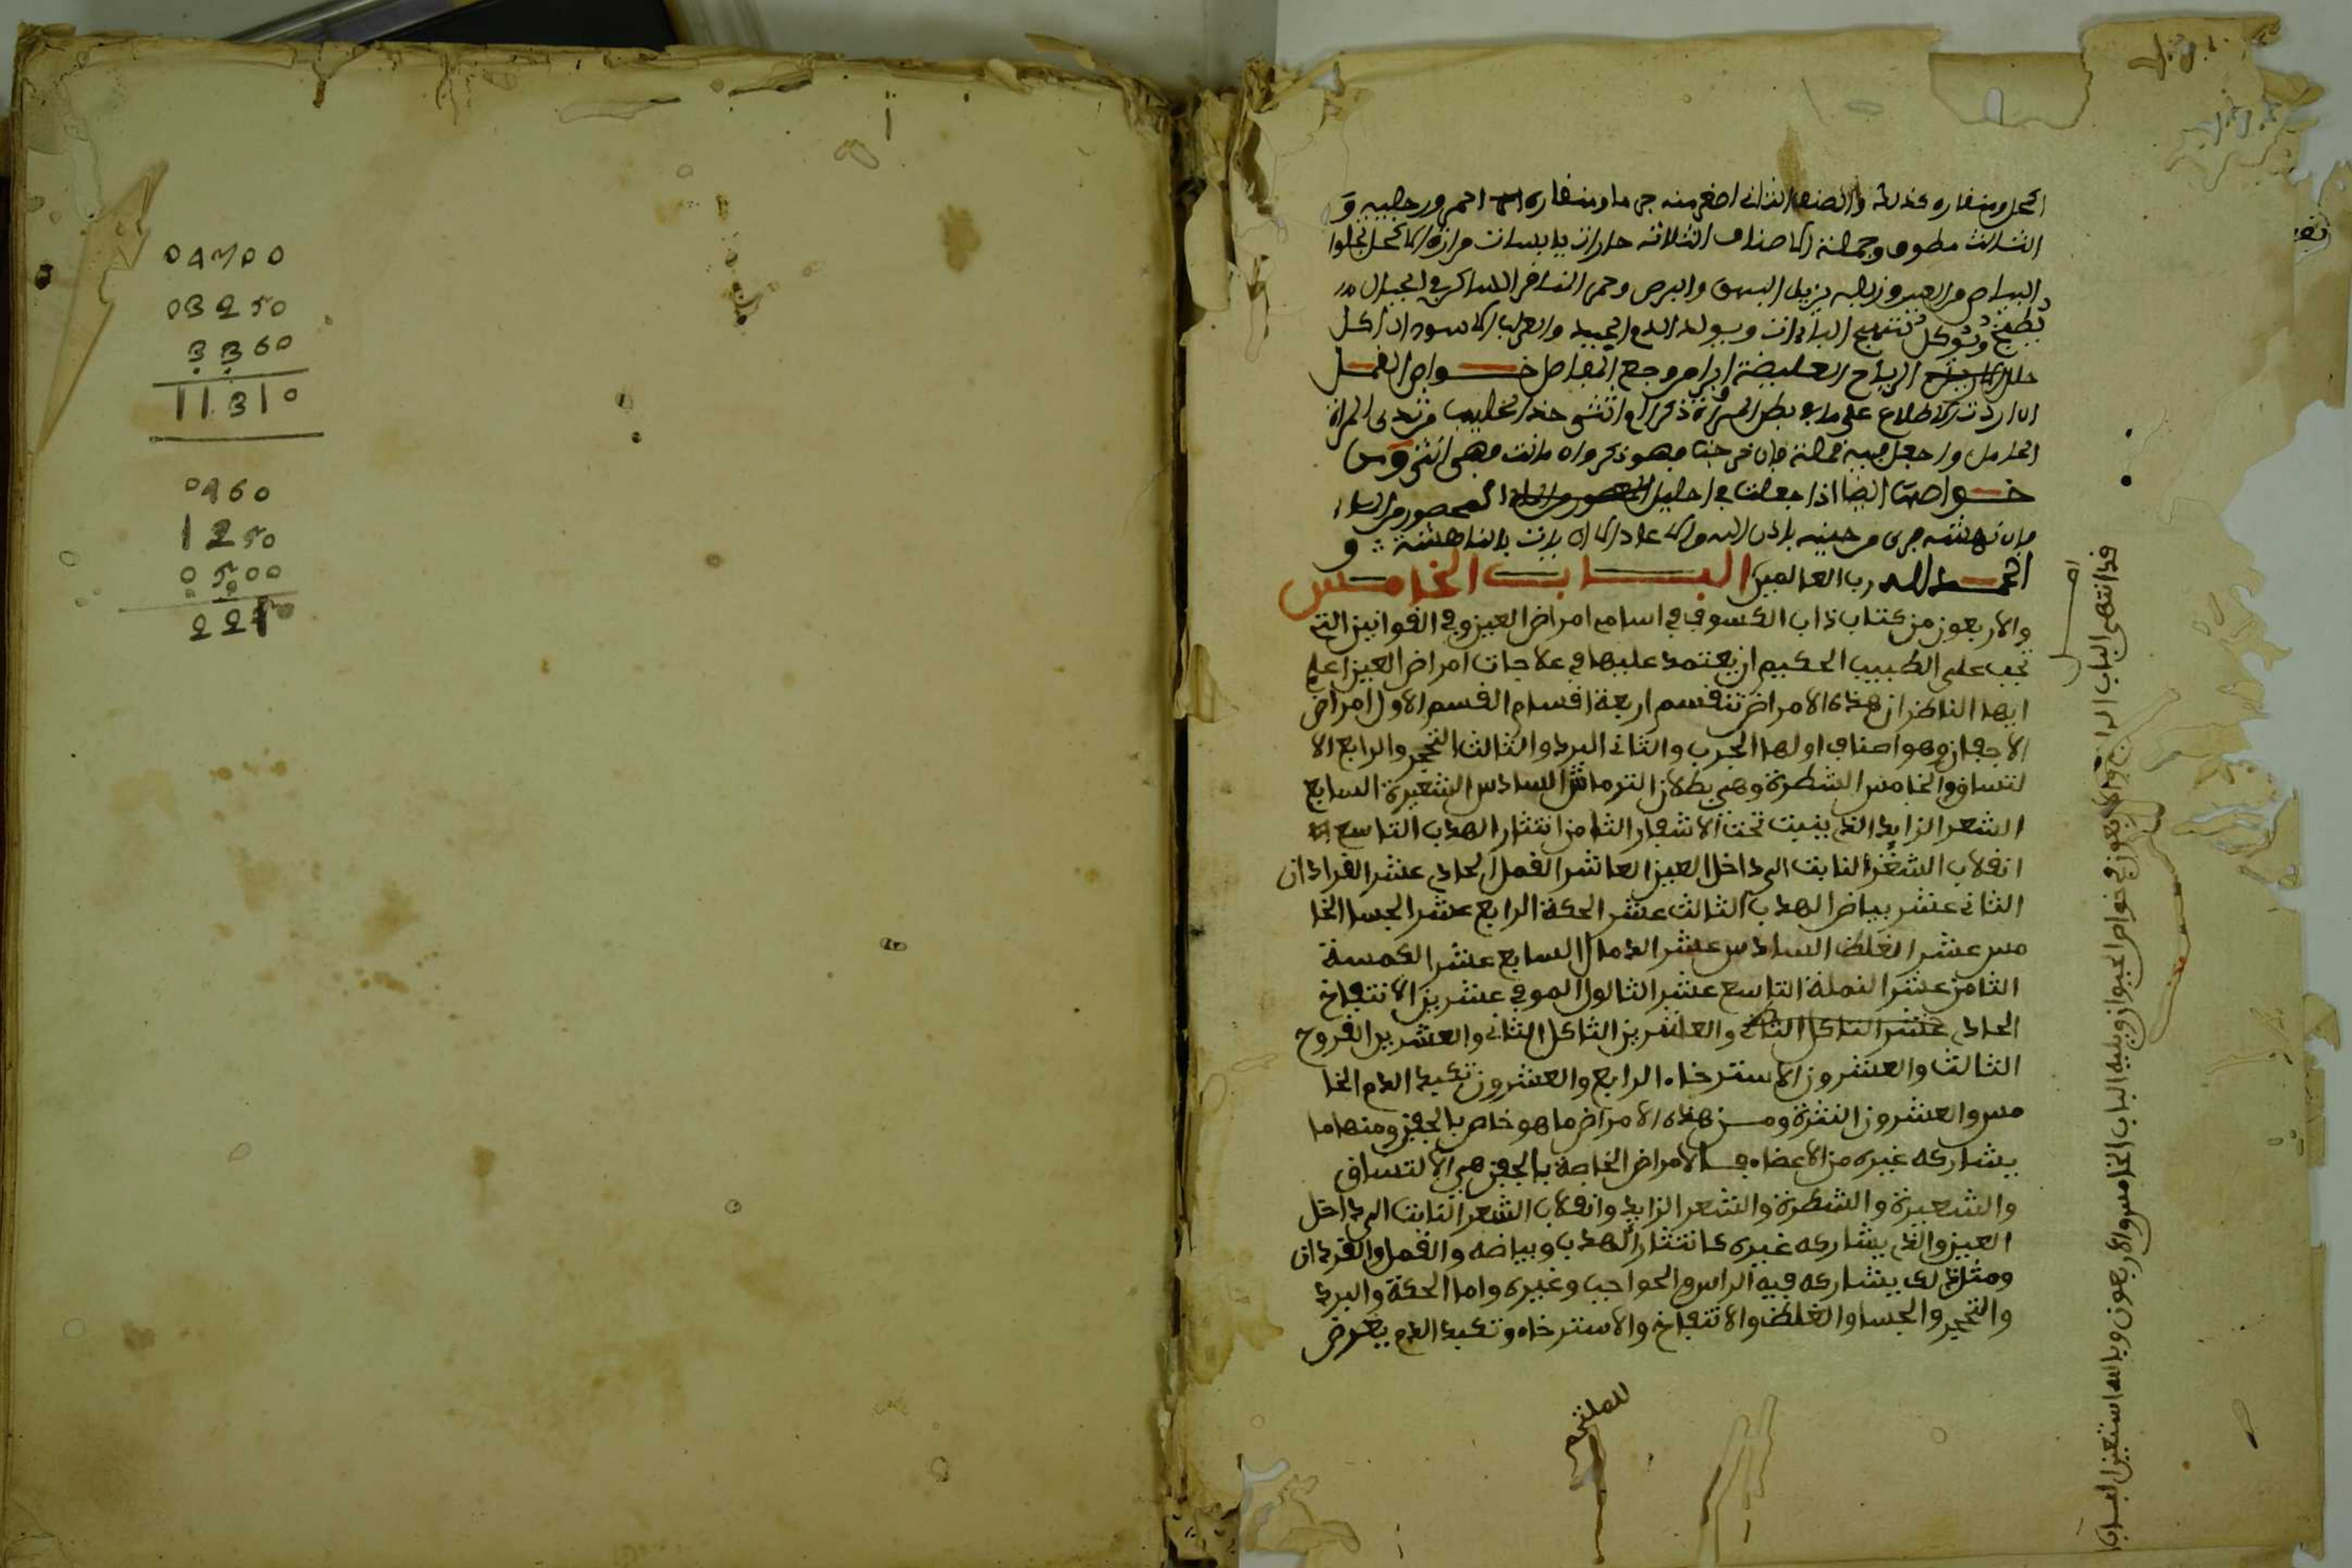 الكحل ومنقاره كذلك والصنف الثاني اصغر منه جرما ومنقاره احمر ورجليه و
الثالث مطوق وجملة الاصناف الثلاثة حارات يابسات مرارة الاكحل تجلوا
البياض من العين وزبله يزيل البهق والبرص وحمى النافر الساكن في الجبال
تطبخ وتوكل تهيج الباءات ويولد الدم الجيد والعراب الاسود ان اكل
الرياح الغليضة ابرا من وجع المفاصل خواص القمل
ان اردت الاطلاع على ما في بطن المراة ذكرا او انثى خذ الحليب من ثدي المراة
الحامل واجعل فيه قملة فان خرجت فهو ذكر وان ماتت فهي انثى ومن
خواصها ايضا اذا جعلت في احليل المحصور من البول
فان نهشته جرى من حينه باذن الله
الحمد لله رب العالمين الباب الخامس
والاربعون من كتاب ذهاب الكسوف في اسامي امراض العين وفي القوانين التي
تجب على الطبيب الحكيم ان يعتمد عليها في علاجات امراض العين اعلم
ايها الناظر ان هذه الامراض تنقسم اربعة اقسام القسم الاول امراض
الاجفان وهو اصناف اولها الجرب والثاني البرد والثالث التحجر والرابع الا
لتساق والخامس الشطرة وهي بطلان الترماش السادس الشعيرة السابع
الشعر الزايد الذي ينبت تحت الاشفار الثامن انتثار الهدب التاسع
انقلاب الشعر النابت الى داخل العين العاشر القمل الحادي عشر القرادان
الثاني عشر بياض الهدب الثالث عشر الحكة الرابع عشر الجسا الخا
مس عشر الغلظ السادس عشر الدمال السابع عشر الكمسة
الثامن عشر النملة التاسع عشر الثالول الموفي عشرين الانتفاخ
الحادي عشر التاكل الثاني والعاشرين التاكل الثاني والعشرين القروح
الثالث والعشرون الاسترخاء الرابع والعشرون تكبد الدم الخا
مس والعشرون النثرة ومن هذه الامراض ما هو خاص بالجفن ومنها ما
يشاركه غيره من الاعضاء فالامراض الخاصة بالجفن هي الالتساق
والشعيرة والشطرة والشعر الزايد وانقلاب الشعر النابت الى داخل
العين والذي يشاركه غيره كانتثار الهدب وبياضه والقمل والقردان
ومثل ذلك يشاركه فيه الراس والحواجب وغيره واما الحكة والبرد
والتحجر والجسا والغلظ والانتفاخ والاسترخاء وتكبد الدم يعرض
للملتحم
قد انتهى الباب الرابع والاربعون في خواص الحيوان ويليه الباب الخامس والاربعون وبالله استعين
03250
3360
11310
0960
1250
0500